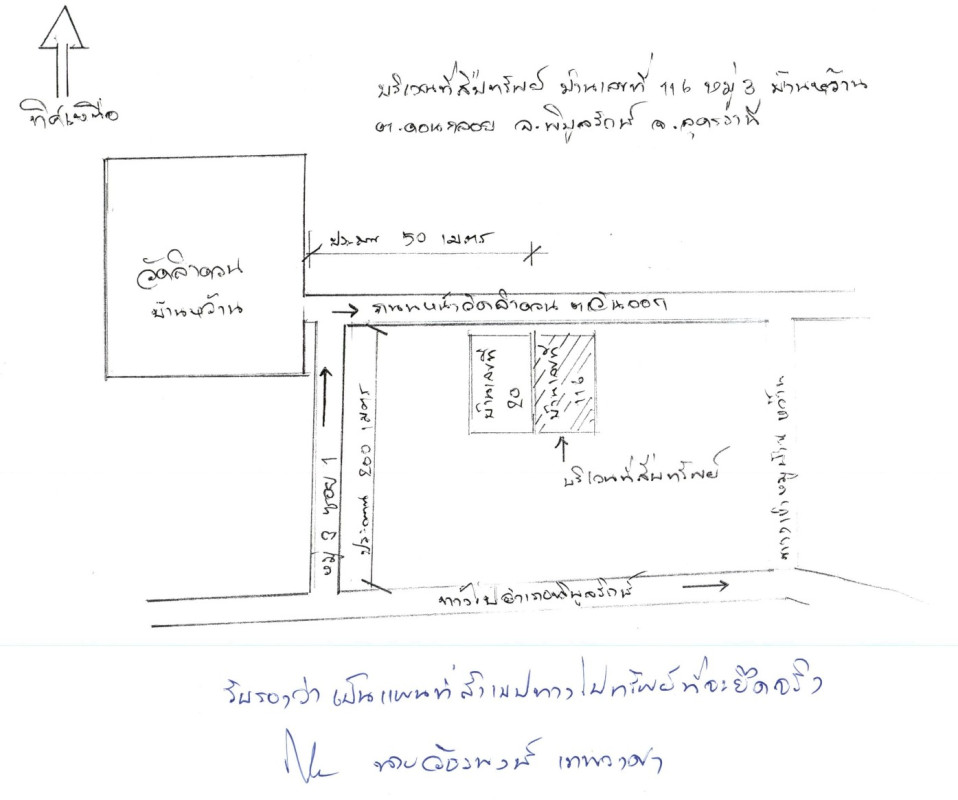 ทิศเหนือ
บริเวณที่สืบทรัพย์ บ้านเลขที่ 116 หมู่ 3 บ้านหว้าน
ต.ดอนกลอย อ.พิบูลย์รักษ์ จ.อุดรธานี
ประมาณ 50 เมตร
วัดลำดวน
บ้านหว้าน
ถนนหน้าวัดลำดวน ตะวันออก
บ้านเลขที่
20
บ้านเลขที่
116
บริเวณที่สืบทรัพย์
ประมาณ 200 เมตร
หมู่ 3 ซอย 1
ทางเข้าหมู่บ้าน หว้าน
ทางไปอำเภอพิบูลย์รักษ์
รับรองว่า เป็นแผนที่สำเนาทางไปทรัพย์ที่จะยึดจริง
นาย